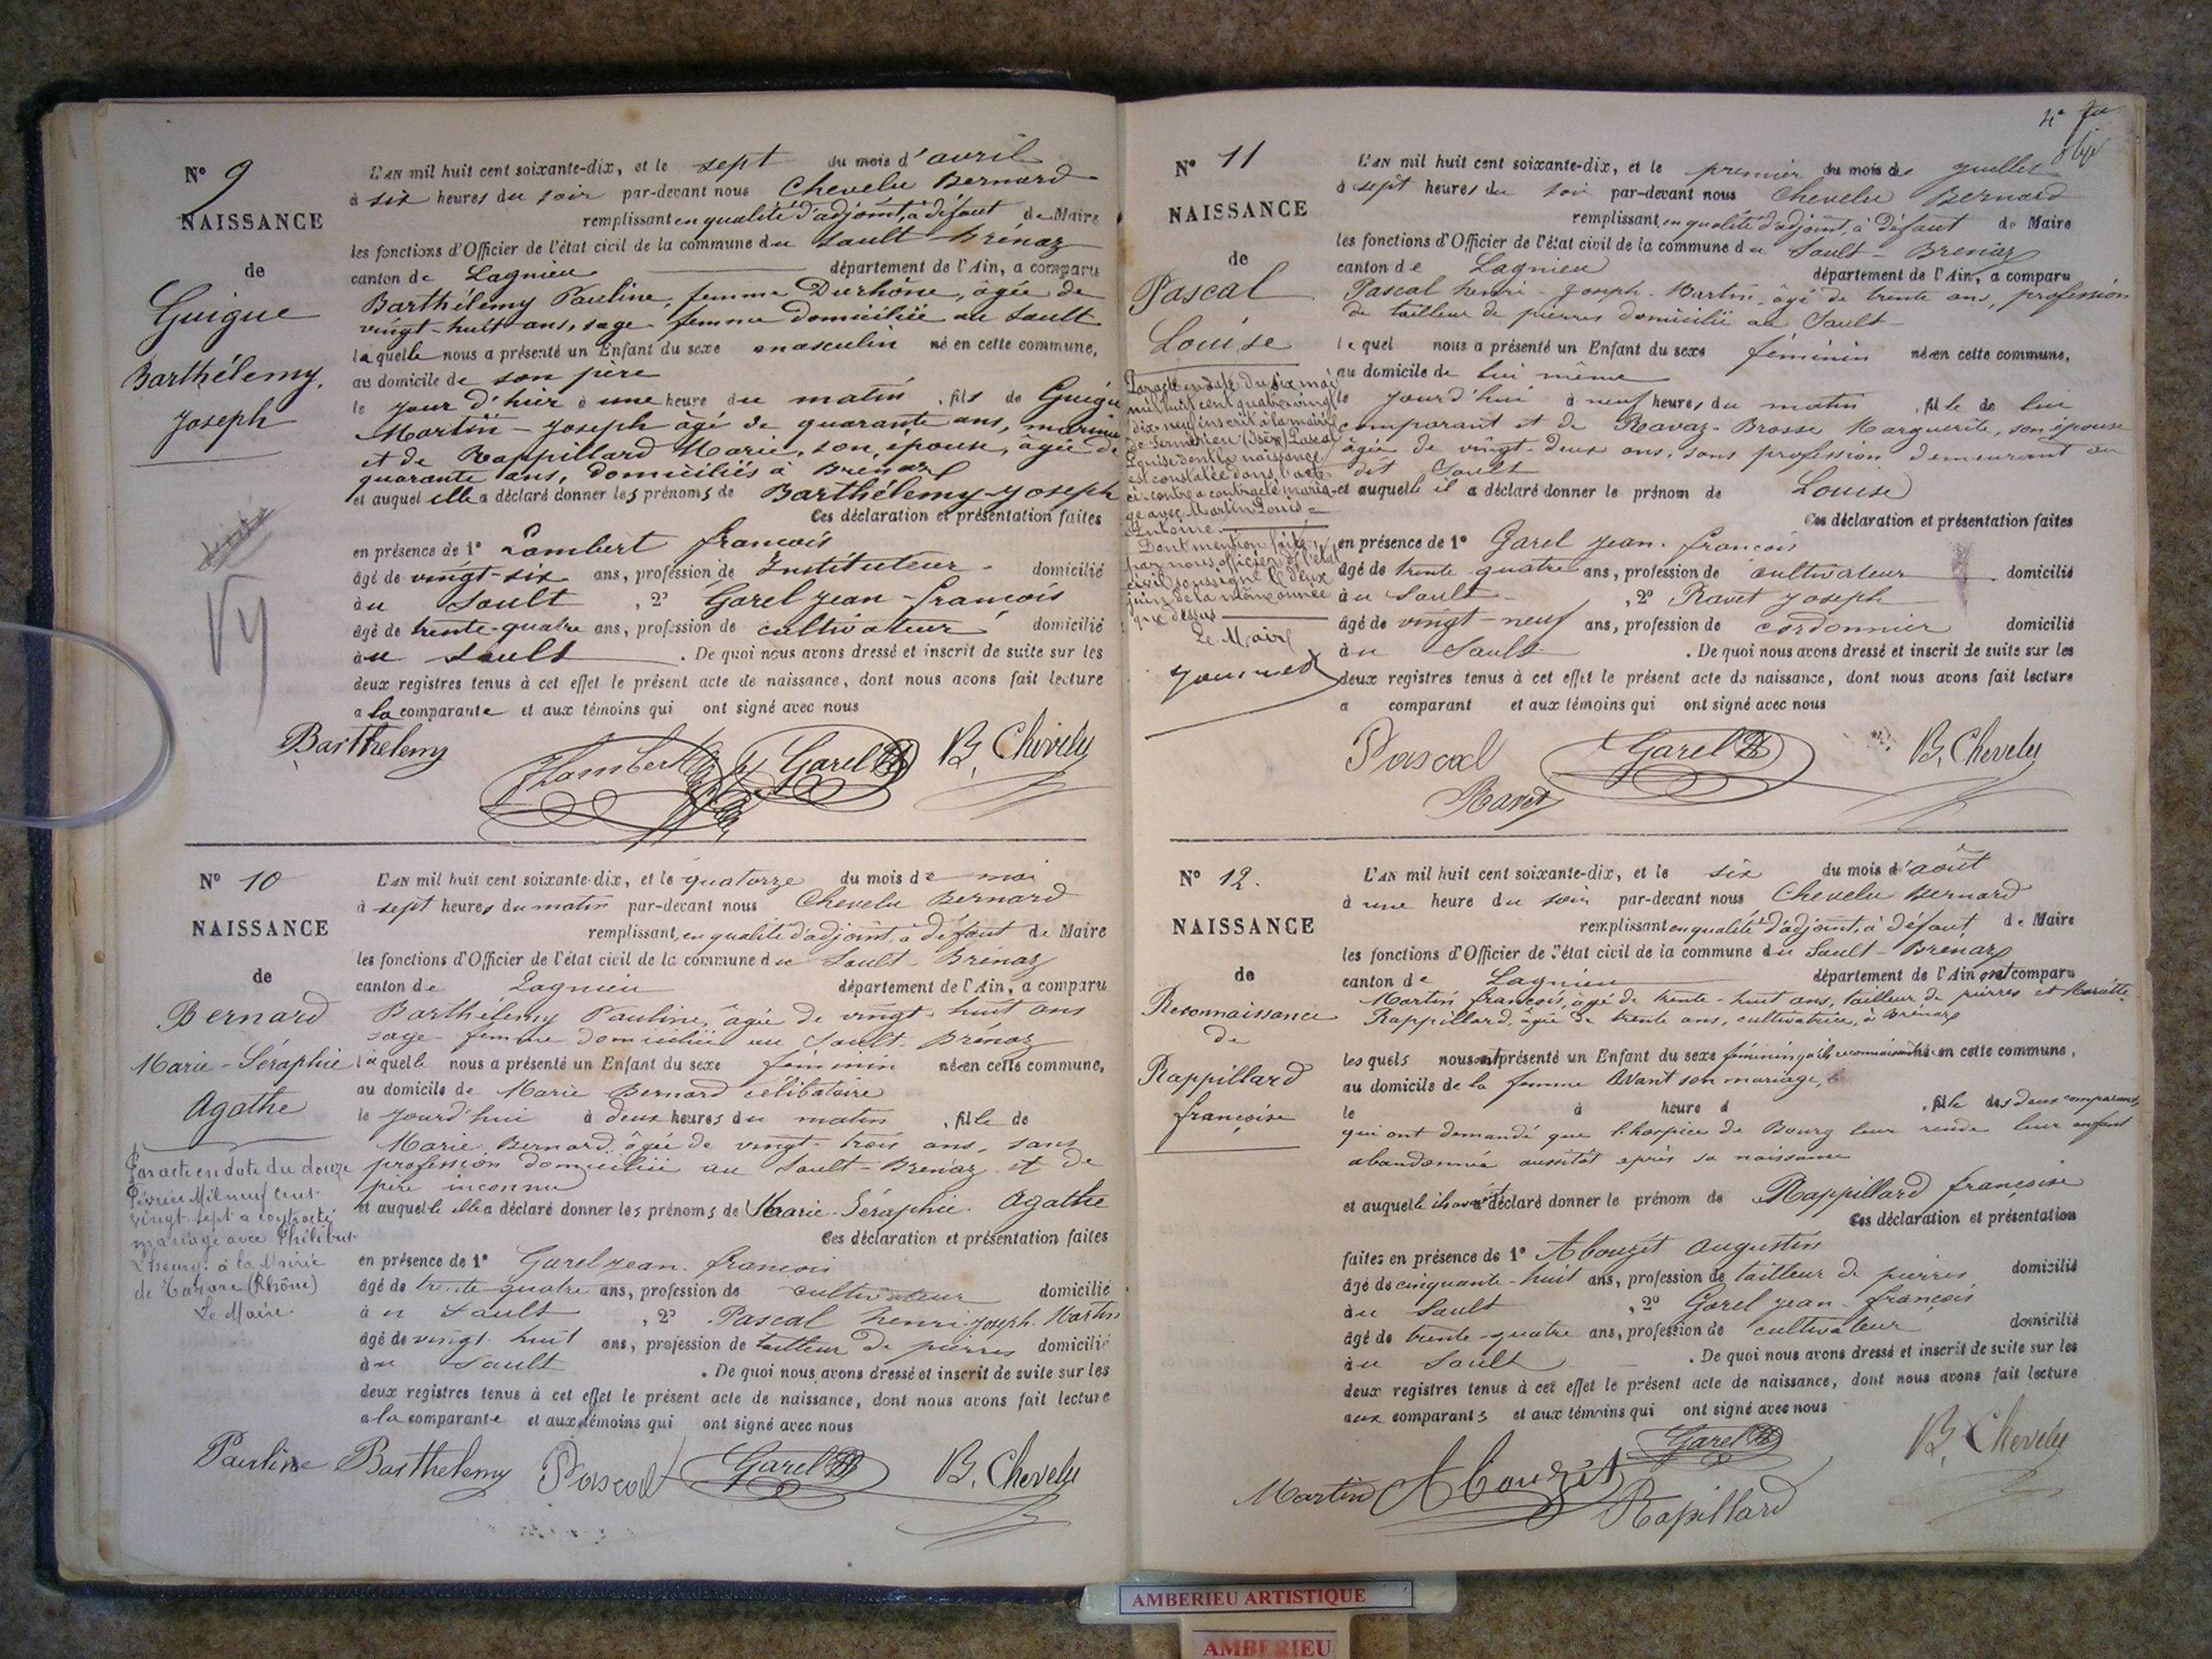 N° 9
NAISSANCE
de
Guigue
Barthélemy
Joseph
L'AN mil huit cent soixante-dix, et le sept du mois d'avril
à six heures du soir par-devant nous Chevelu Bernard
remplissant en qualité d'adjoint, à défaut de Maire
les fonctions d'Officier de l'état civil de la commune du Sault-Brénaz
canton de Lagnieu département de l'Ain, a comparu
Barthélemy Pauline, femme Durhône, âgée de
vingt-huit ans, sage-femme domiciliée au Sault
laquelle nous a présenté un Enfant du sexe masculin né en cette commune,
au domicile de son père
le jour d'hier à une heure du matin, fils de Guigue
Martin-Joseph âgé de quarante ans, marinier
et de Rappillard Marie, son épouse, âgée de
quarante ans, domiciliés à Brénaz
et auquel elle a déclaré donner les prénoms de Barthélemy-Joseph
Ces déclaration et présentation faites
en présence de 1° Lambert françois
âgé de vingt-six ans, profession de Instituteur domicilié
au Sault, 2° Garel Jean-françois
âgé de trente-quatre ans, profession de cultivateur domicilié
au Sault. De quoi nous avons dressé et inscrit de suite sur les
deux registres tenus à cet effet le présent acte de naissance, dont nous avons fait lecture
a la comparante et aux témoins qui ont signé avec nous
Barthelemy Lambert Garel B. Chevelu
N° 10
NAISSANCE
de
Bernard
Marie-Séraphie
Agathe
Par acte en date du douze
février Mil neuf cent
vingt-sept a contracté
mariage avec Philibert
à la Mairie
de Tarare (Rhône)
Le Maire.
L'AN mil huit cent soixante-dix, et le quatorze du mois de mai
à sept heures du matin par-devant nous Chevelu Bernard
remplissant, en qualité d'adjoint, à défaut de Maire
les fonctions d'Officier de l'état civil de la commune du Sault-Brénaz
canton de Lagnieu département de l'Ain, a comparu
Barthélemy Pauline, âgée de vingt-huit ans
sage-femme domiciliée au Sault-Brénaz
laquelle nous a présenté un Enfant du sexe féminin née en cette commune,
au domicile de Marie Bernard célibataire
le jourd'hui à deux heures du matin, fille de
Marie Bernard, âgée de vingt-trois ans, sans
profession domiciliée au Sault-Brenaz et de
père inconnu
et auquelle elle a déclaré donner les prénoms de Marie-Séraphie Agathe
Ces déclaration et présentation faites
en présence de 1° Garel Jean-francois
âgé de trente-quatre ans, profession de cultivateur domicilié
au Sault, 2° Pascal henri-Joseph-Martin
âgé de vingt-huit ans, profession de tailleur de pierres domicilié
au Sault. De quoi nous avons dressé et inscrit de suite sur les
deux registres tenus à cet effet le présent acte de naissance, dont nous avons fait lecture
a la comparante et aux témoins qui ont signé avec nous
Pauline Barthelemy Pascal Garel B. Chevelu
N° 11
NAISSANCE
de
Pascal
Louise
Par acte en date du six mai
mil huit cent quatre vingt
dix neuf inscrit à la mairie
de Sermérieu (Isère) Pascal
Louise dont la naissance
est constatée dans l'acte
ci-contre a contracté maria-
ge avec Martin Louis
Antoine.
Dont mention faite
par nous officier de l'état
civil soussigné le deux
juin de la même année
que dessus
Le Maire
L'AN mil huit cent soixante-dix, et le premier du mois de Juillet
à sept heures du soir par-devant nous Chevelu Bernard
remplissant, en qualité d'adjoint, à défaut de Maire
les fonctions d'Officier de l'état civil de la commune du Sault-Brenaz
canton de Lagnieu département de l'Ain, a comparu
Pascal henri-Joseph-Martin, âgé de trente ans, profession
de tailleur de pierres domicilié au Sault
lequel nous a présenté un Enfant du sexe féminin née en cette commune,
au domicile de lui même
le jourd'hui à neuf heures du matin, fille de lui
comparant et de Ravaz-Brosse Marguerite, son épouse
âgée de vingt-deux ans, sans profession demeurant au
dit Sault
et auquelle il a déclaré donner le prénom de Louise
Ces déclaration et présentation faites
en présence de 1° Garel Jean-françois
âgé de trente-quatre ans, profession de cultivateur domicilié
au Sault, 2° Ravet Joseph
âgé de vingt-neuf ans, profession de cordonnier domicilié
au Sault. De quoi nous avons dressé et inscrit de suite sur les
deux registres tenus à cet effet le présent acte de naissance, dont nous avons fait lecture
a comparant et aux témoins qui ont signé avec nous
Pascal Garel B. Chevelu
Ravet
N° 12.
NAISSANCE
de
Reconnaissance
de
Rappillard
françoise
L'AN mil huit cent soixante-dix, et le six du mois d'août
à une heure du soir par-devant nous Chevelu Bernard
remplissant en qualité d'adjoint, à défaut de Maire
les fonctions d'Officier de l'état civil de la commune du Sault-Brenaz
canton de Lagnieu département de l'Ain ont comparu
Martin françois, âgé de trente-huit ans, tailleur de pierres et Mariette
Rappillard, âgée de trente ans, cultivatrice, à Brénaz
lesquels nous ont présenté un Enfant du sexe féminin qu'ils reconnaissent née en cette commune,
au domicile de la femme Avant son mariage,
le à heure d, fille des deux comparants
qui ont demandé que l'hospice de Bourg leur rende leur enfant
abandonnée aussitôt après sa naissance
et auquelle ils avaient déclaré donner le prénom de Rappillard françoise
Ces déclaration et présentation
faites en présence de 1° Abouzit Augustin
âgé de cinquante-huit ans, profession de tailleur de pierres domicilié
au Sault, 2° Garel Jean-françois
âgé de trente-quatre ans, profession de cultivateur domicilié
au Sault. De quoi nous avons dressé et inscrit de suite sur les
deux registres tenus à cet effet le présent acte de naissance, dont nous avons fait lecture
aux comparants et aux témoins qui ont signé avec nous
Martin Abouzit Garel B. Chevelu
Rapillard
AMBERIEU ARTISTIQUE
AMBERIEU